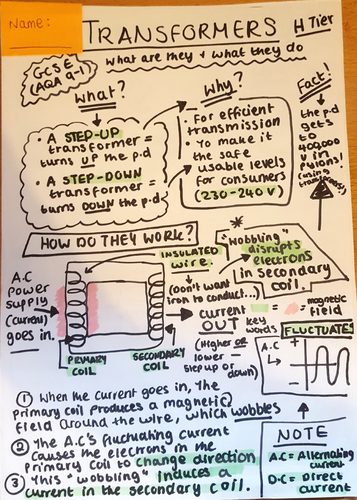 Name:
TRANSFORMERS H Tier
what are they + what they do
GCSE
(AQA 9-1)
What?
• A STEP-UP
transformer =
turns UP the p.d
• A STEP-DOWN
transformer =
turns DOWN the p.d
Why?
• For efficient
transmission
• To make it
the safe
usable levels
for consumers
(230-240 v)
Fact!
the p.d
gets
to
400,000
v in
pylons!
(using
transformers)
HOW DO THEY WORK?
A.C
Power
supply
(current)
goes in.
INSULATED
wire.
(Don't want
iron to conduct...)
PRIMARY
COIL
SECONDARY
COIL
*
"Wobbling"
disrupts
electrons
in secondary
coil.
current
OUT
(Higher OR
lower -
step up or
down)
= key
words
= magnetic
field
FLUCTUATES
A.C
+
-
① When the current goes in, the
primary coil produces a magnetic
field around the wire, which wobbles
② The A.C's fluctuating current
causes the electrons in the
Primary Coil to change direction
③ This "wobbling" induces a
current in the secondary coil.
NOTE
A.C = Alternating
current
D.C = Direct
current